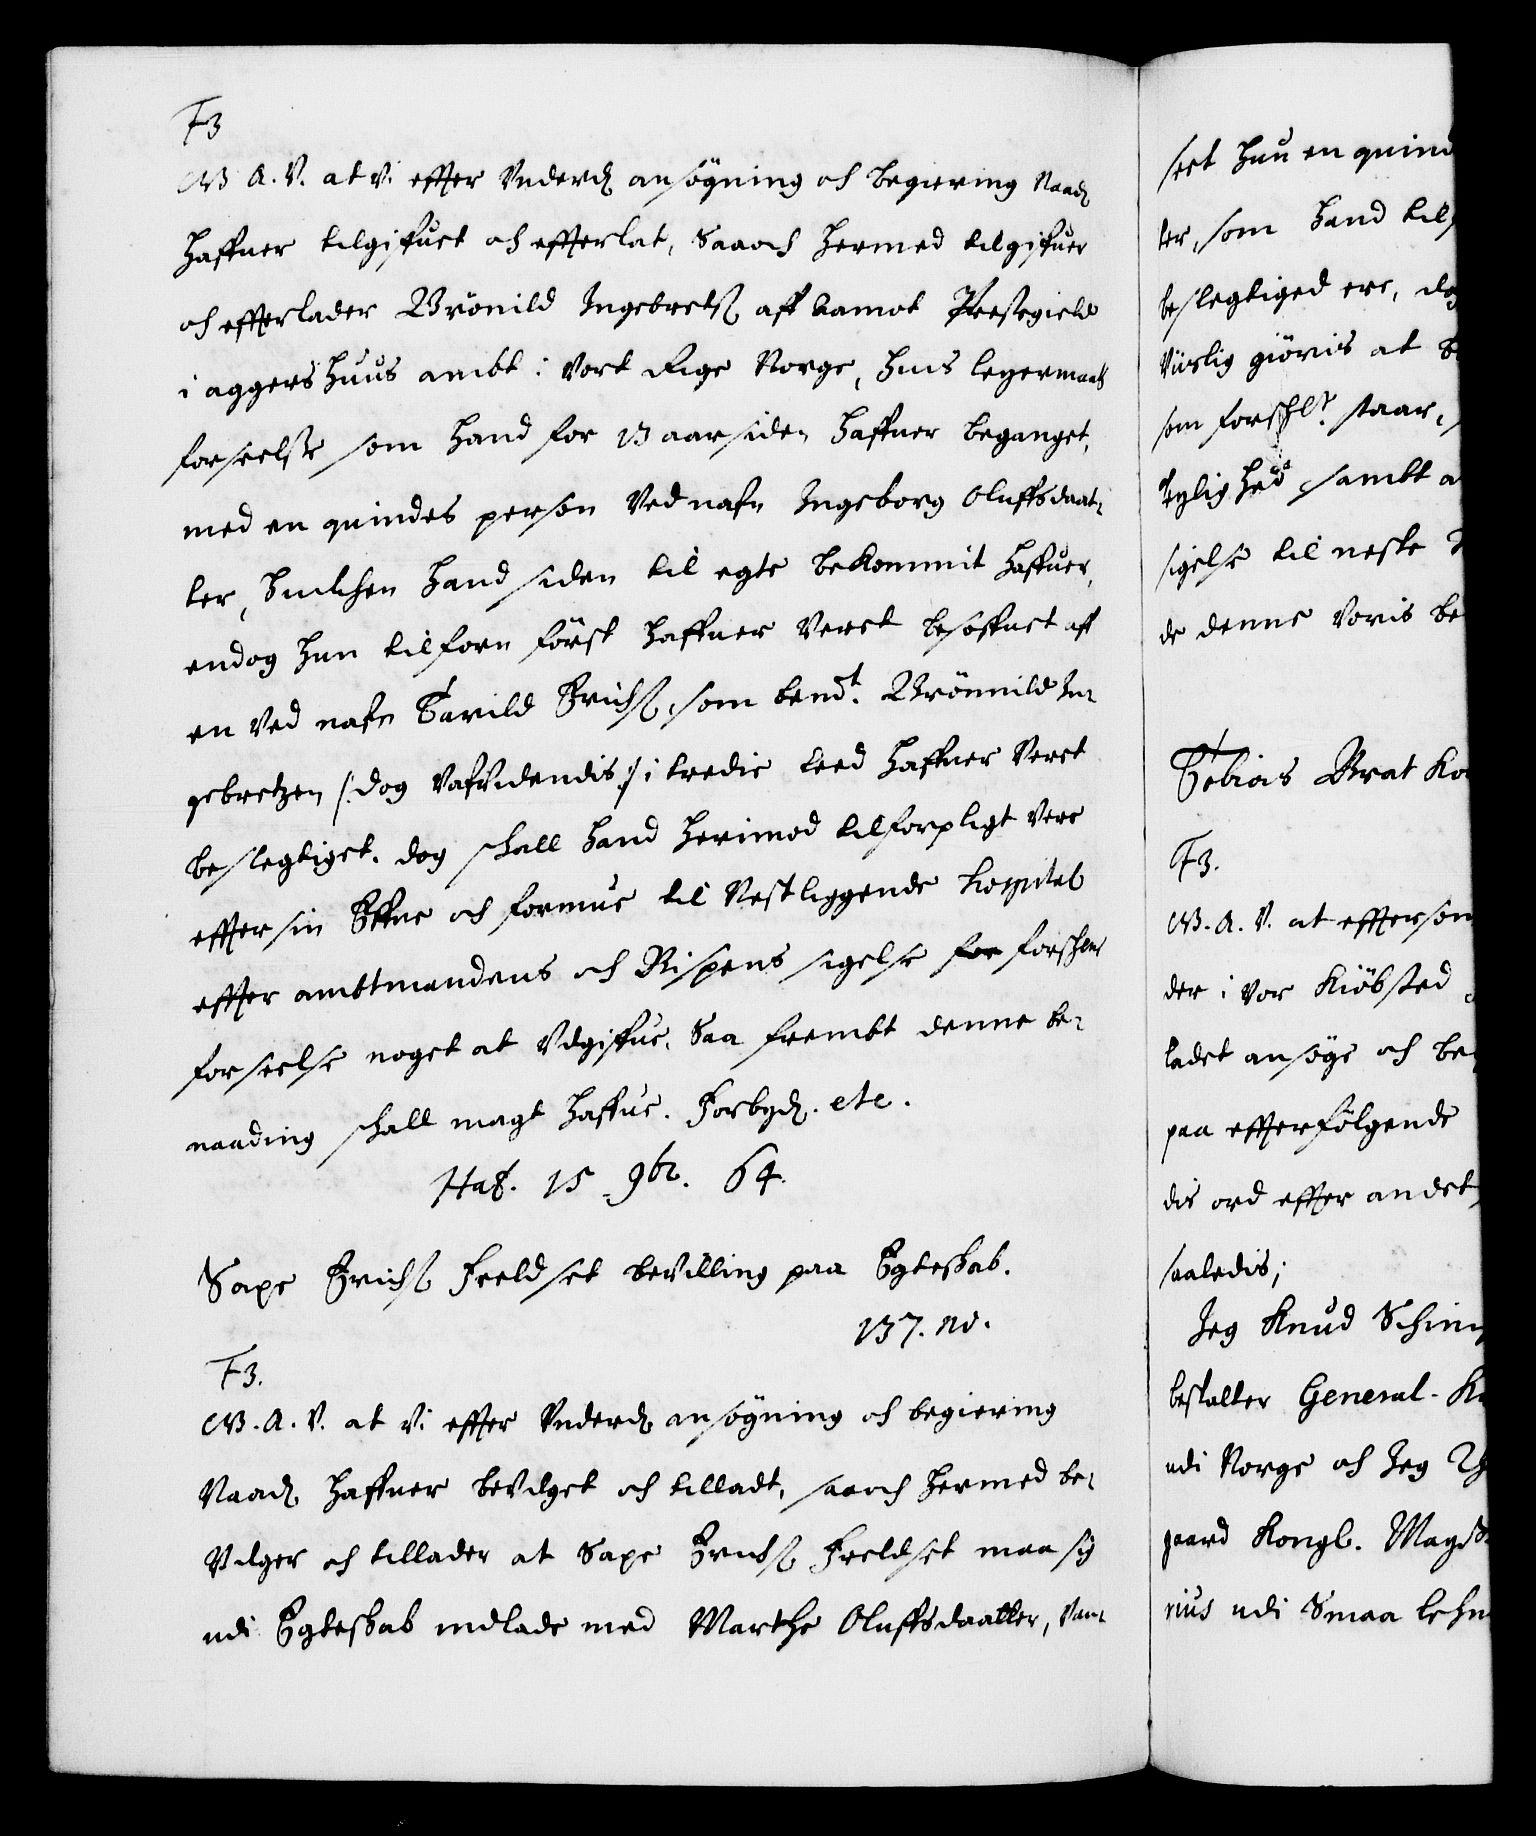 F3
G. A. V. at Vi effter Underd: ansögning och begiering Naad:
haffuer tilgiffuet och effterlat, Saaoch hermed tilgifuer
och effterlader Brönild Ingebretß: aff Aamot Prestegield
i aggershuus ambt i Vort Rige Norge, hans leyermaals
forseelse som hand for 13 aar siden haffuer beganget,
med en quindes person Ved nafn Ingeborg Oluffsdaat-
ter, huilchen hand siden til egte bekommit haffuer,
endog hun tilforn först haffuer Veret besoffuet aff
en Ved nafn Tarild Erichß: som bemt. Brönnild In-
gebretzen /: dog Vafvidendis :/ i tredie leed haffuer Veret
beslegtiget. dog schall hand herimod tilforpligt Vere
effter sin Effne och formue til Nestliggende hospital
effter ambtmandens och Bispens sigelse for forschne
forseelse noget at Udgiffue, Saa frembt denne be-
naading schall magt haffue. Forbyd: etc.
Haf. 15 9br. 64.
Saxe Erichß: Feeldset beVilling paa Egteskab.
137. no.
F3.
G. A. V. at Vi effter Underd: ansögning och begiering
Naad: haffuer beVilget och tilladt, saaoch hermed be-
Vilger och tillader at Saxe Erichß: Feeldset maa sig
udi Egteskab indlade med Marthe Oluffsdaatter, Uan-
seet hun en quind
ter, som hand til
beslegtiged ere, dog
Vürlig giöris at
som forschlt. staar,
tylighed sambt a
sigelse til neste
de denne Voris be
Tobias Brat Ko
F3.
G. A. V. at effterson
der i Vor Kiöbsted
ladet ansöge och be
paa effterfölgende
dis ord effter andet
saaledis;
Jeg Knud Schin
bestalter General-K
udi Norge och Jeg
gaard Kongl. Mayst.
rius udi Smaa lehn